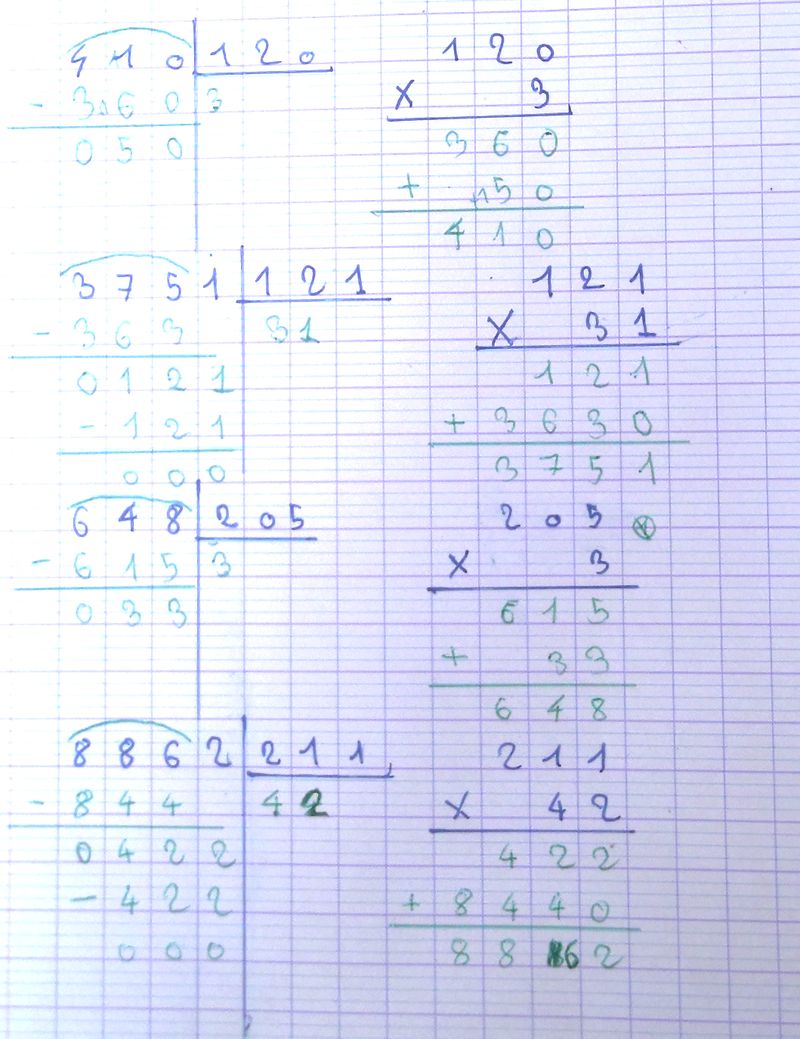 410 120 120
- 360 3 x 3
050 360
+ 150
410
3751 121 121
- 363 31 x 31
0121 121
- 121 + 3630
000 3751
648 205 205
- 615 3 x 3
033 615
+ 33
648
8862 211 211
- 844 42 x 42
0422 422
- 422 + 8440
000 8862